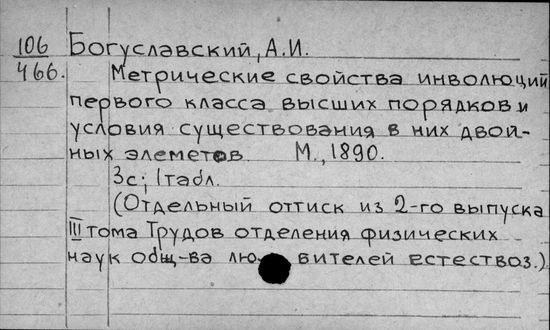 106 Богуславский, А.И.
466. Метрические свойства инволюций
первого класса высших порядков и
условия существования в них двой-
ных элеметов М., 1890.
3с; 1табл.
(Отдельный оттиск из 2-го выпуска
III тома Трудов отделения физических
наук общ-ва лю вителей естествоз.)